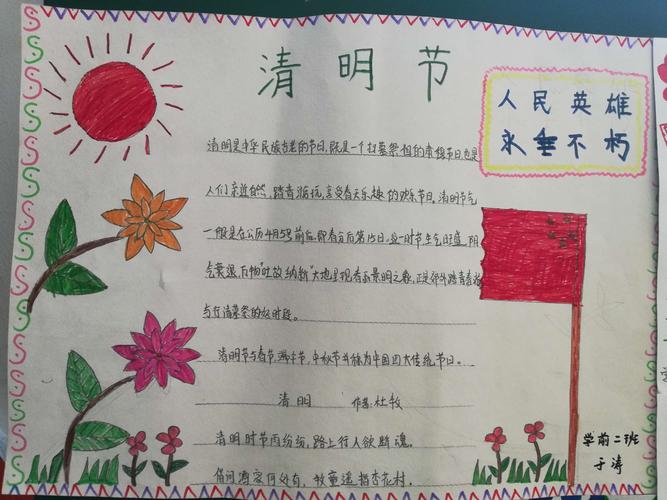 清明节
人民英雄
永垂不朽
清明是中华民族古老的节日,既是一个扫墓祭祖的肃穆节日,也是
人们亲近自然、踏青游玩、享受春天乐趣的欢乐节日。清明节气
一般是在公历4月5号前后,即春分后第15日,这一时节生气旺盛,阴
气衰退,万物"吐故纳新"大地呈现春和景明之象,正是郊外踏青春游
与行清墓祭的好时段。
清明节与春节、端午节、中秋节并称为中国四大传统节日。
清明 作者:杜牧
清明时节雨纷纷,路上行人欲断魂。
借问酒家何处有,牧童遥指杏花村。
学前二班
于涛